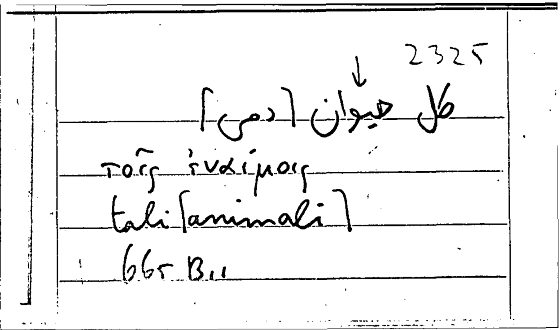 2325
كل حيوان [دمى]
τοῖς ἐναίμοις
tali [animali]
665 B11